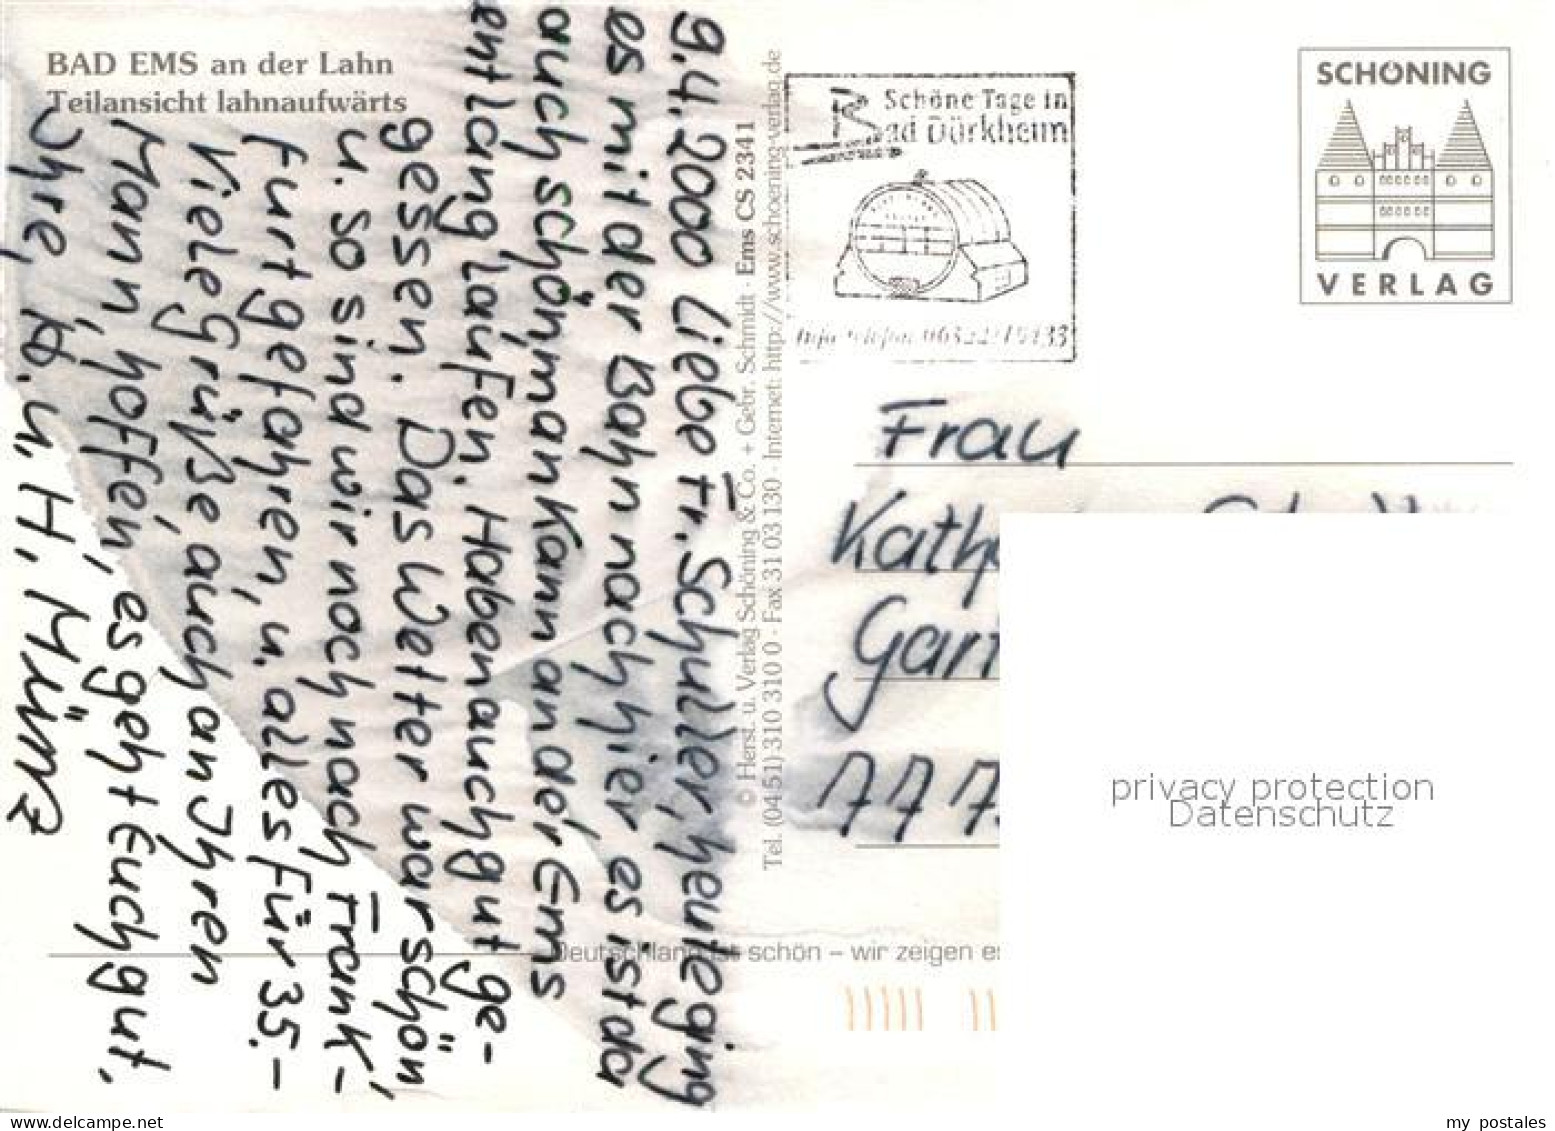 BAD EMS an der Lahn
Teilansicht lahnaufwärts
9.4.2000 Liebe Fr. Schuller, heute ging
es mit der Bahn nach hier es ist da
auch schön man kann an der Ems
entlang laufen. Haben auch gut ge-
gessen. Das Wetter war schön,
u. so sind wir noch nach Frank-
furt gefahren, u. alles für 35.-
Viele Grüße auch an Ihren
Mann, hoffen, es geht Euch gut.
Ihre, A. u. H. Münz
© Herst. u. Verlag Schöning & Co. + Gebr. Schmidt · Ems CS 2341
Tel. (04 51) 310 310 0 · Fax 31 03 130 · Internet: http://www.schoening-verlag.de
Schöne Tage in
Bad Dürkheim
Info telefon 06322/19433
SCHÖNING
VERLAG
Frau
Kath
Gart
777
privacy protection
Datenschutz
Deutschland ist schön – wir zeigen es
my postales